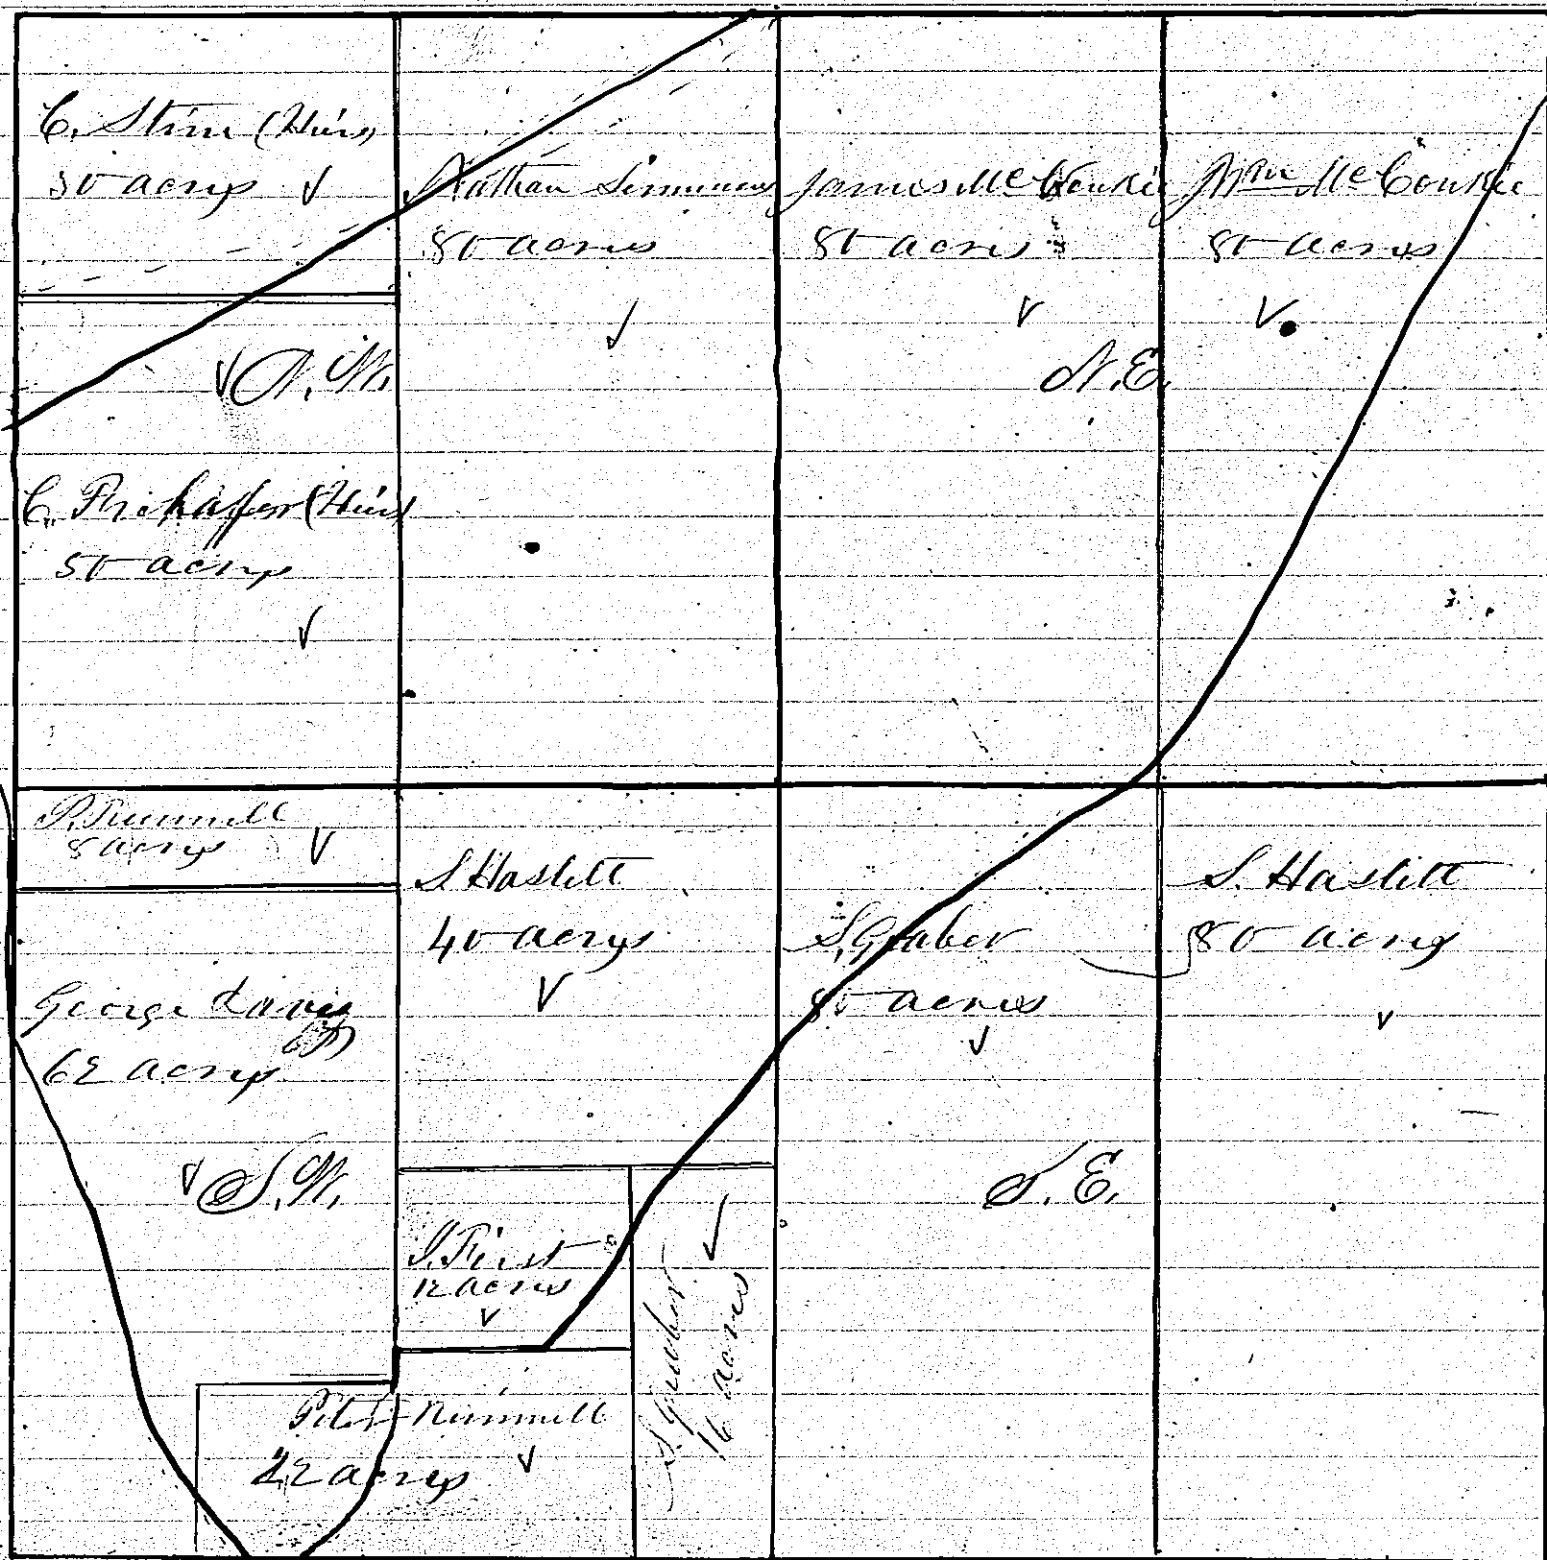 C. Stine (Heirs)
30 acres
Nathan Simmons
80 acres
James McConkie
80 acres
Wm McConkie
80 acres
N. W.
N. E.
C. (Heirs)
50 acres
P. Rummell
8 acres
S Haslett
40 acres
S. Gruber
80 acres
S. Haslett
80 acres
George
62 acres
S. W.
S. E.
J. First
12 acres
S. Gruber
16 acres
Peter Rummell
22 acres